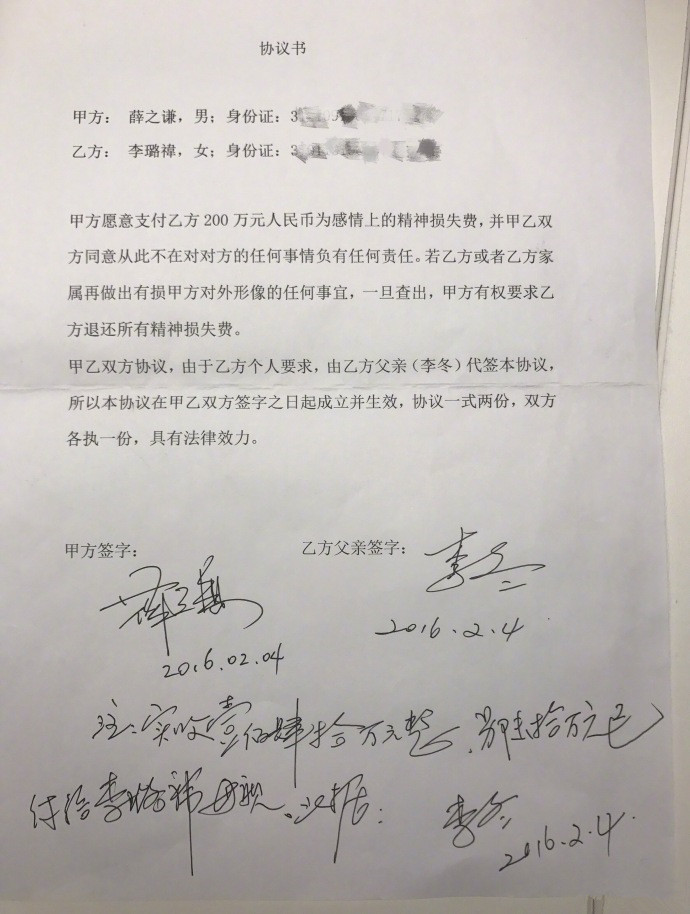 协议书
甲方： 薛之谦，男；身份证：3
乙方： 李璐禕，女；身份证：3
甲方愿意支付乙方 200 万元人民币为感情上的精神损失费，并甲乙双
方同意从此不在对对方的任何事情负有任何责任。若乙方或者乙方家
属再做出有损甲方对外形像的任何事宜，一旦查出，甲方有权要求乙
方退还所有精神损失费。
甲乙双方协议，由于乙方个人要求，由乙方父亲（李冬）代签本协议，
所以本协议在甲乙双方签字之日起成立并生效，协议一式两份，双方
各执一份，具有法律效力。
甲方签字： 乙方父亲签字： 李冬
薛之谦 2016.2.4
2016.02.04
注：实收壹佰肆拾万元整，拾万元已
付给李璐禕母亲。立据： 李冬
2016.2.4.